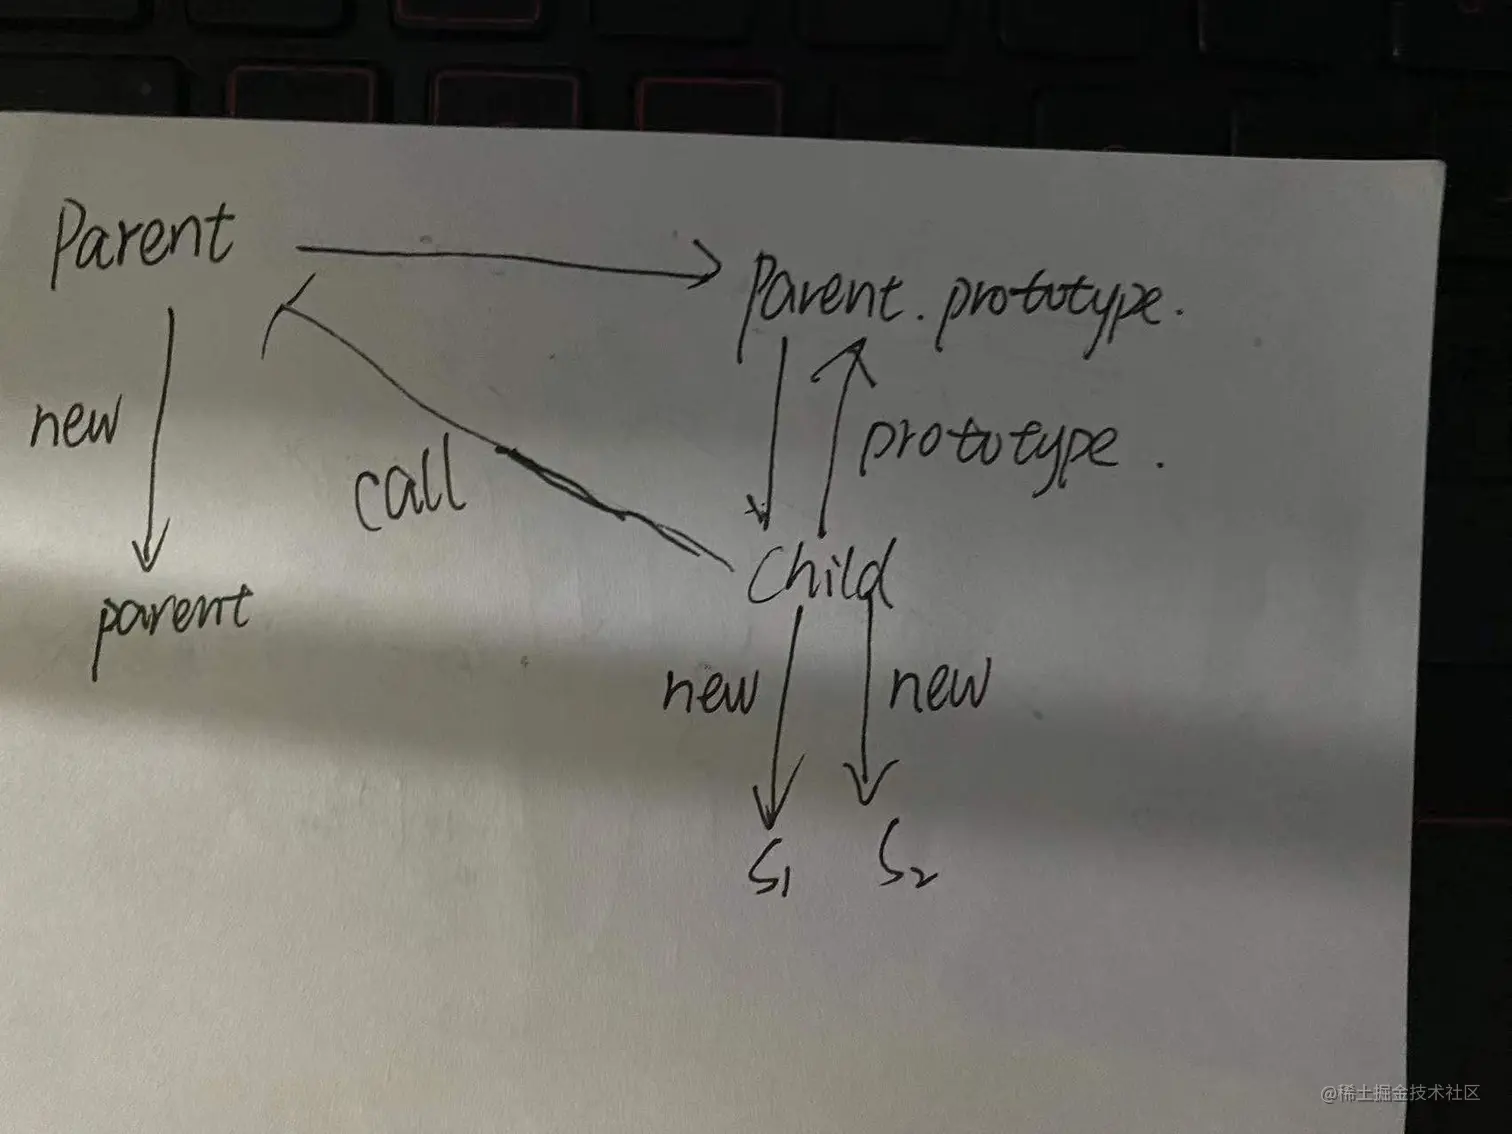 Parent
Parent.prototype.
new
prototype.
call
Child
parent
new
new
S1
S2
@稀土掘金技术社区